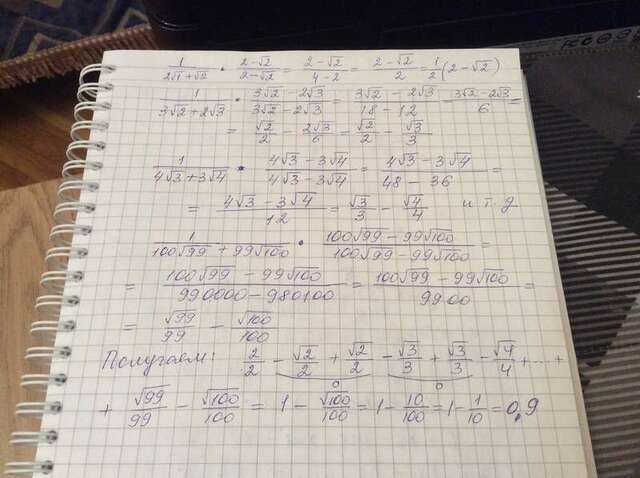 1/(2√1+√2) · (2-√2)/(2-√2) = (2-√2)/(4-2) = (2-√2)/2 = 1/2 (2-√2)
1/(3√2+2√3) · (3√2-2√3)/(3√2-2√3) = (3√2-2√3)/(18-12) = (3√2-2√3)/6 =
= √2/2 - 2√3/6 = √2/2 - √3/3
1/(4√3+3√4) · (4√3-3√4)/(4√3-3√4) = (4√3-3√4)/(48-36) =
= (4√3-3√4)/12 = √3/3 - √4/4 и т.д
1/(100√99+99√100) · (100√99-99√100)/(100√99-99√100) =
= (100√99-99√100)/(990000-980100) = (100√99-99√100)/9900 =
= √99/99 - √100/100
Получаем: 2/2 - √2/2 + √2/2 - √3/3 + √3/3 - √4/4 + ... +
0 0
+ √99/99 - √100/100 = 1 - √100/100 = 1 - 10/100 = 1 - 1/10 = 0,9